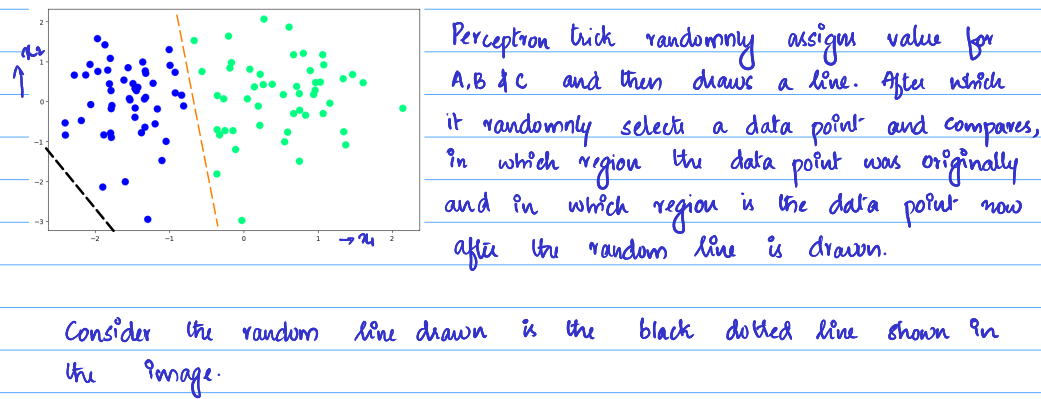 Perceptron trick randomnly assigns value for
A, B & C and then draws a line. After which
it randomnly selects a data point and compares,
in which region the data point was originally
and in which region is the data point now
after the random line is drawn.
x2
2
1
0
−1
−2
−3
−2 −1 0 1 2
→ x1
Consider the random line drawn is the black dotted line shown in
the image.